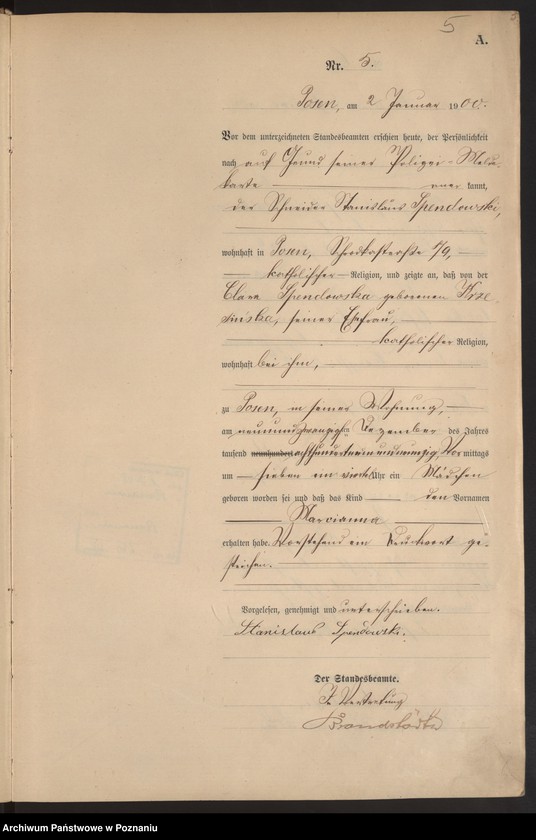 5
5
A.
Nr. 5.
Posen, am 2 Januar 1900.
Vor dem unterzeichneten Standesbeamten erschien heute, der Persönlichkeit
nach auf Grund seiner Polizei-Melde-
karte kannt,
der Schneider Stanislaus Spendowski,
wohnhaft in Posen, 79,
katholischer Religion, und zeigte an, daß von der
Clara Spendowska geborenen Krze
sinska, seiner Ehefrau,
katholischer Religion,
wohnhaft bei ihm,
zu Posen, in seiner Wohnung,
am neunundzwanzigsten Dezember des Jahres
tausend neunhundert achthundertneunundneunzig Vormittags
um sieben ein viertel Uhr ein Mädchen
geboren worden sei und daß das Kind den Vornamen
Marcianna
erhalten habe. Vorstehend ein Druckwort ge-
strichen.
Vorgelesen, genehmigt und unterschrieben.
Stanislaus Spendowski.
Der Standesbeamte.
In Vertretung
Archiwum Państwowe w Poznaniu